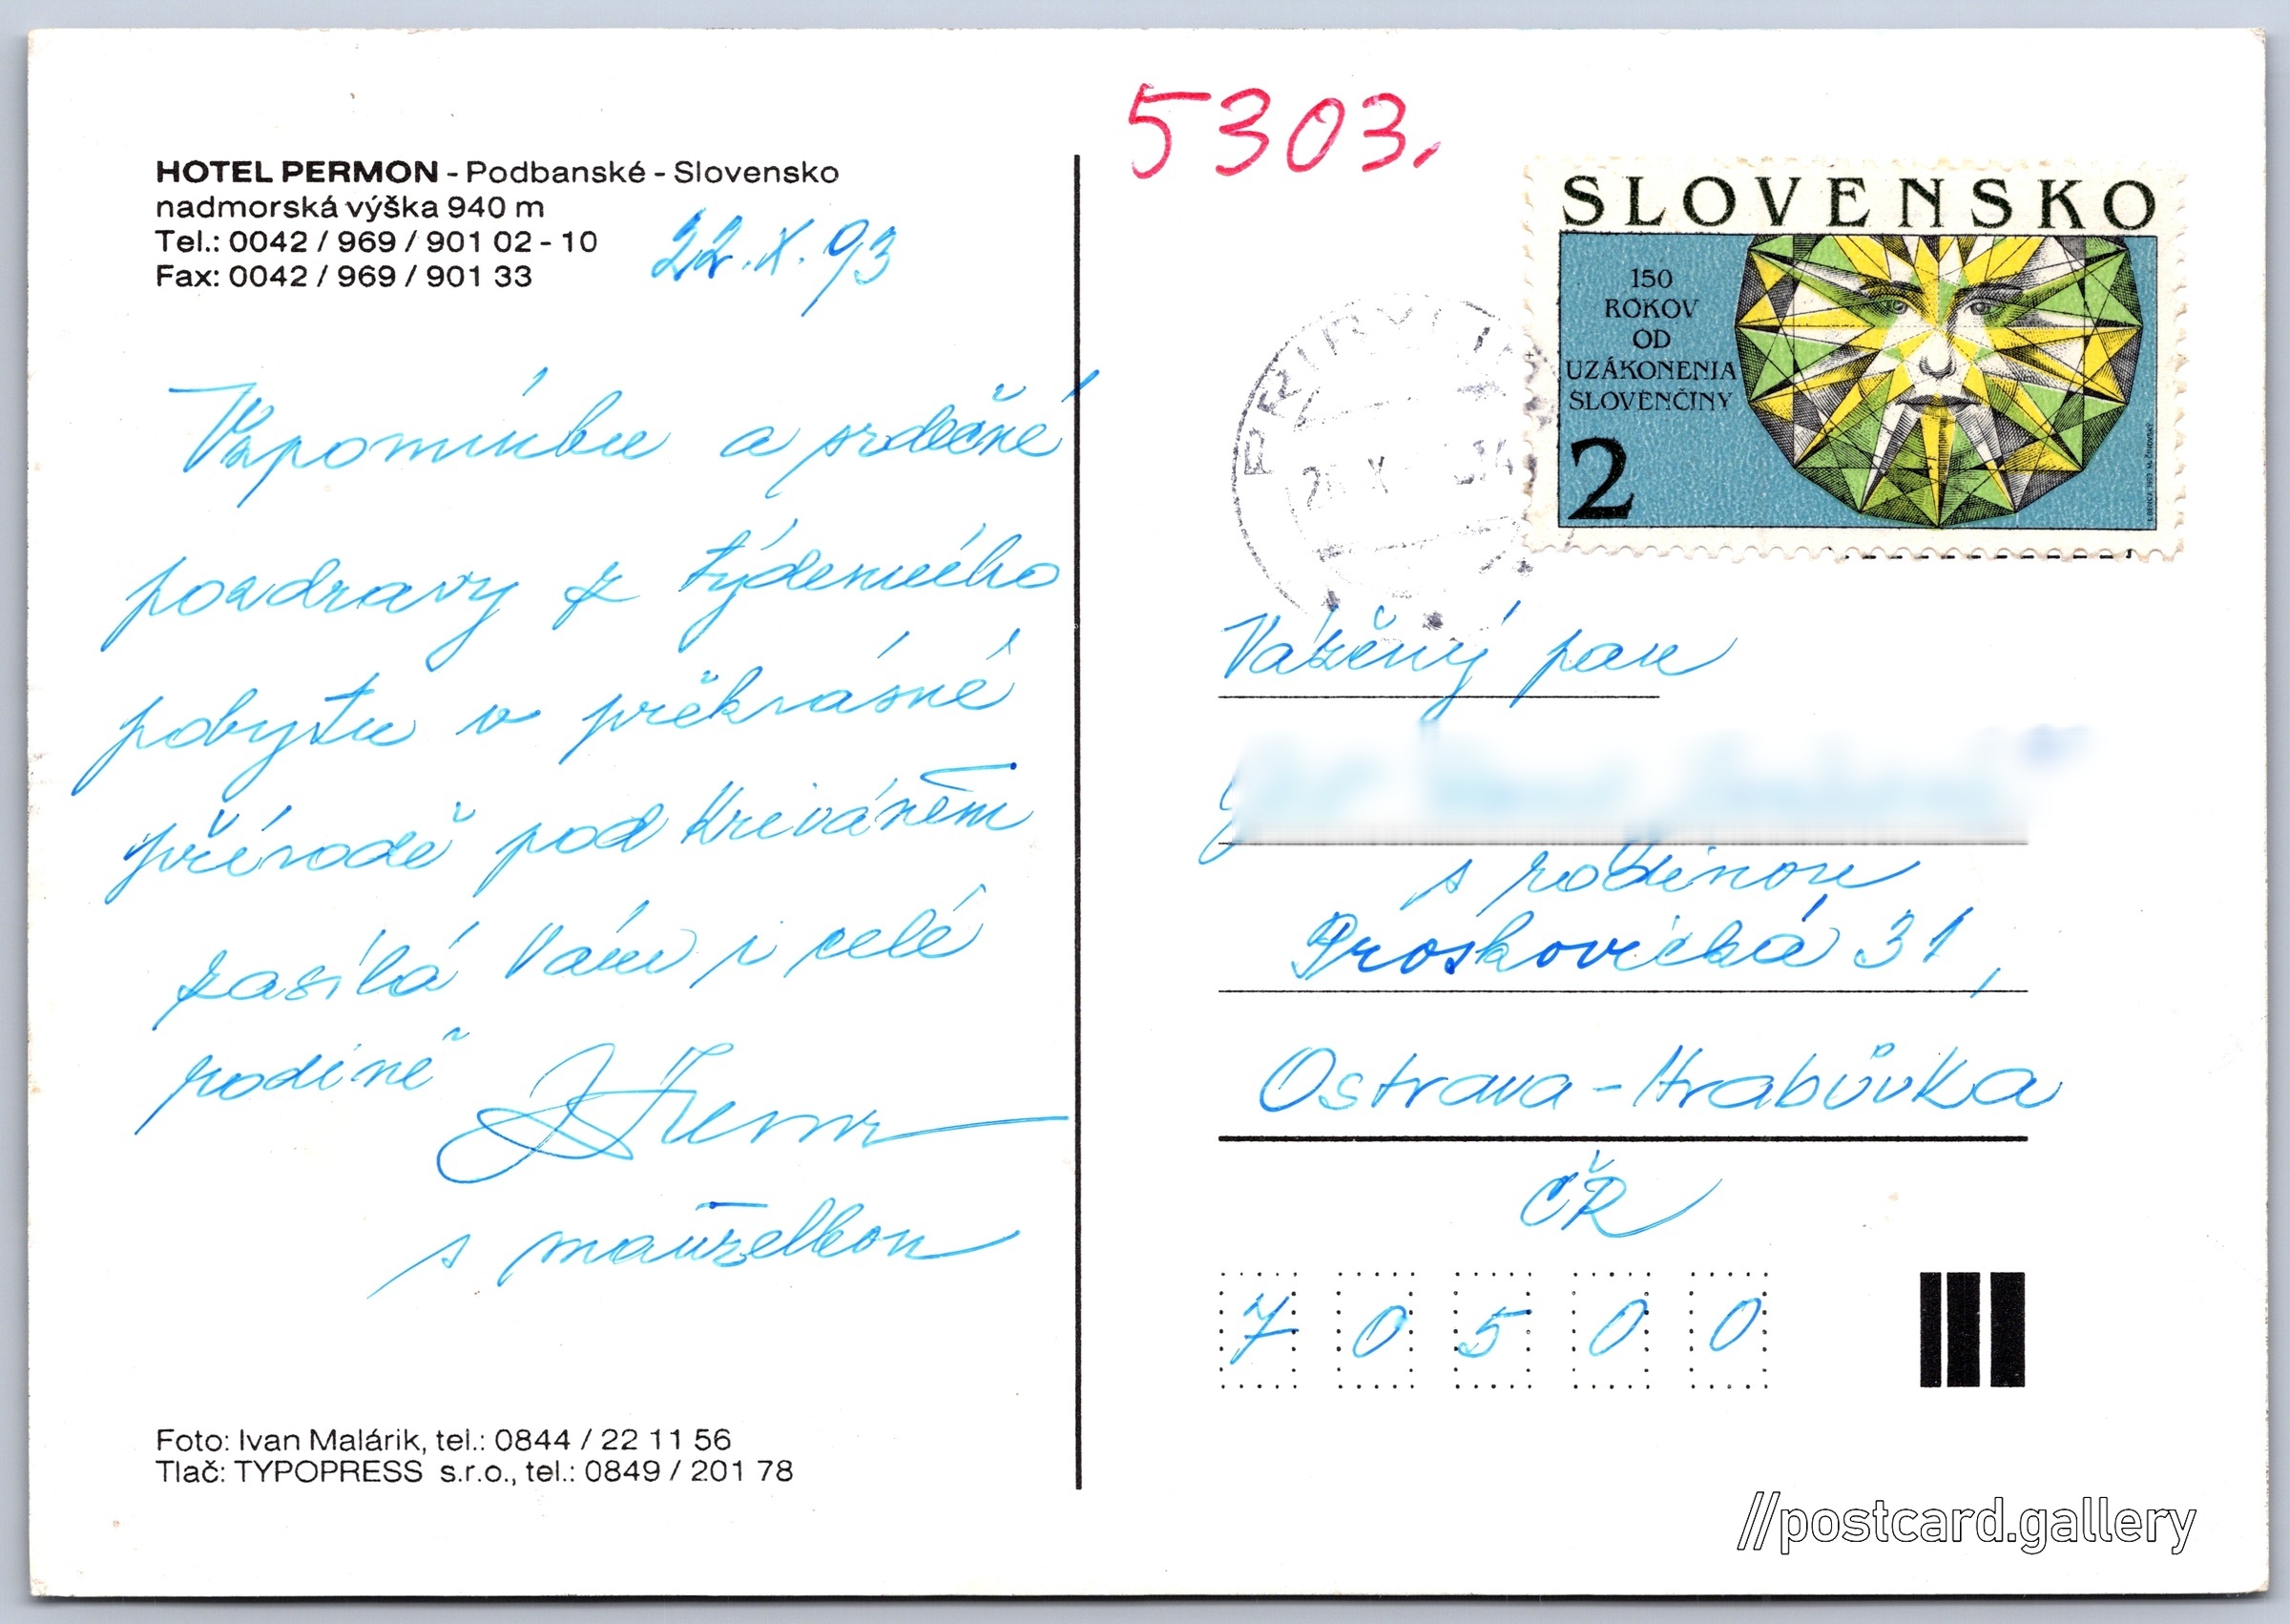 HOTEL PERMON - Podbanské - Slovensko
nadmorská výška 940 m
Tel.: 0042 / 969 / 901 02 - 10
Fax: 0042 / 969 / 901 33
22.X.93
Vzpomínku a srdečné
pozdravy z týdenního
pobytu v překrásné
přírodě pod Kriváněm
zasílá Vám i celé
rodině
s manželkou
Foto: Ivan Malárik, tel.: 0844 / 22 11 56
Tlač: TYPOPRESS s.r.o., tel.: 0849 / 201 78
5303.
SLOVENSKO
150
ROKOV
OD
UZÁKONENIA
SLOVENČINY
2
Vážený pan
s rodinou
Proskovická 31,
Ostrava-Hrabůvka
ČR
7 0 5 0 0
//postcard.gallery